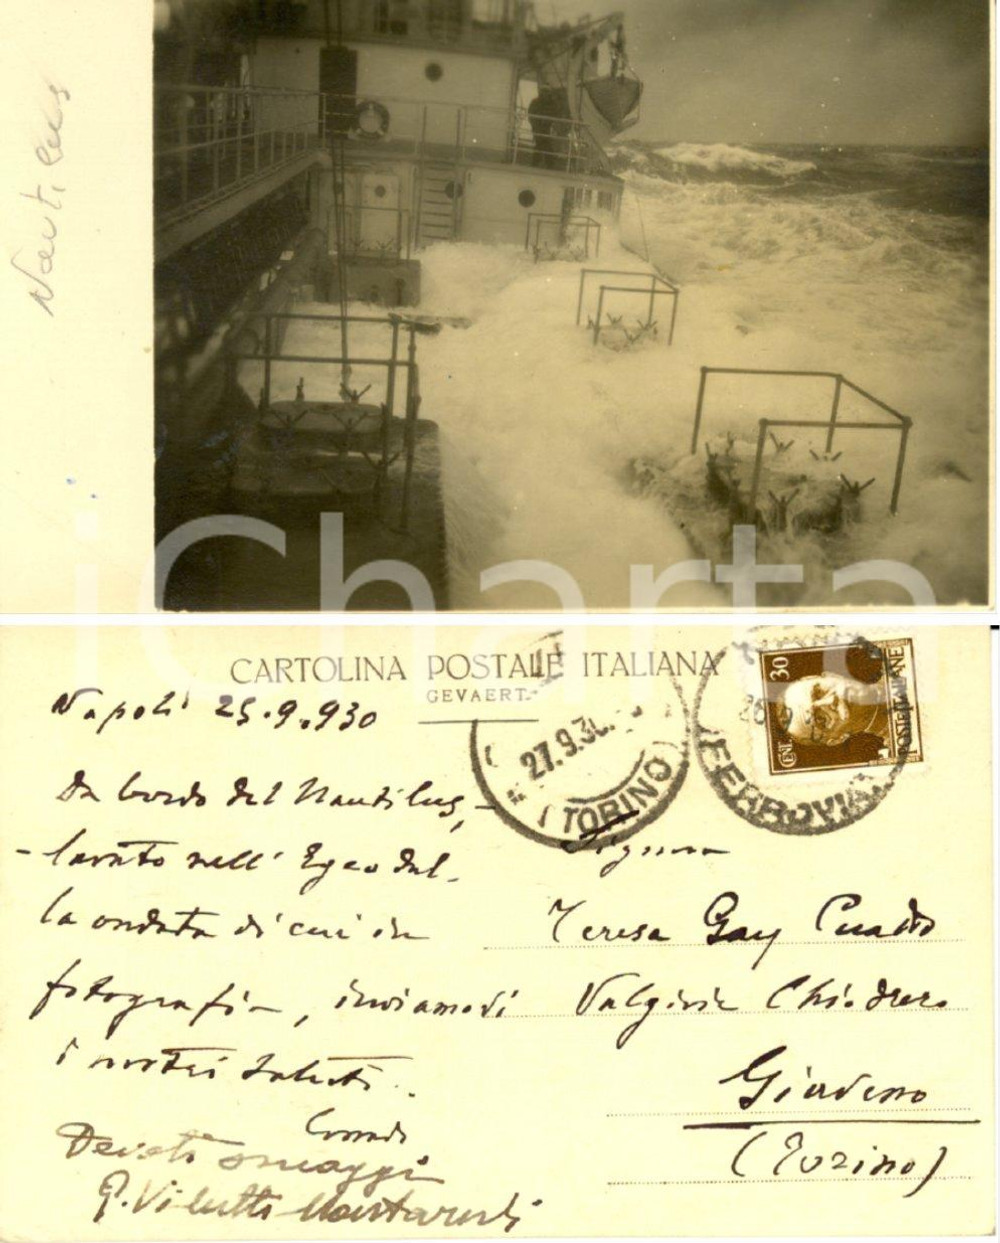 Nautilus
iCharta
CARTOLINA POSTALE ITALIANA
GEVAERT
Napoli 25.9.930
Da bordo del Nautilus,
lavato nell' Egeo dal-
la ondata di cui in
fotografia, inviamovi
i nostri saluti.
Corrado
Devoti omaggi
G. Viletti
27.9.30
TORINO
26
FERROVIA
CENT. 30
POSTE ITALIANE
Signora
Teresa Gay
Valgioie
Giaveno
(Torino)